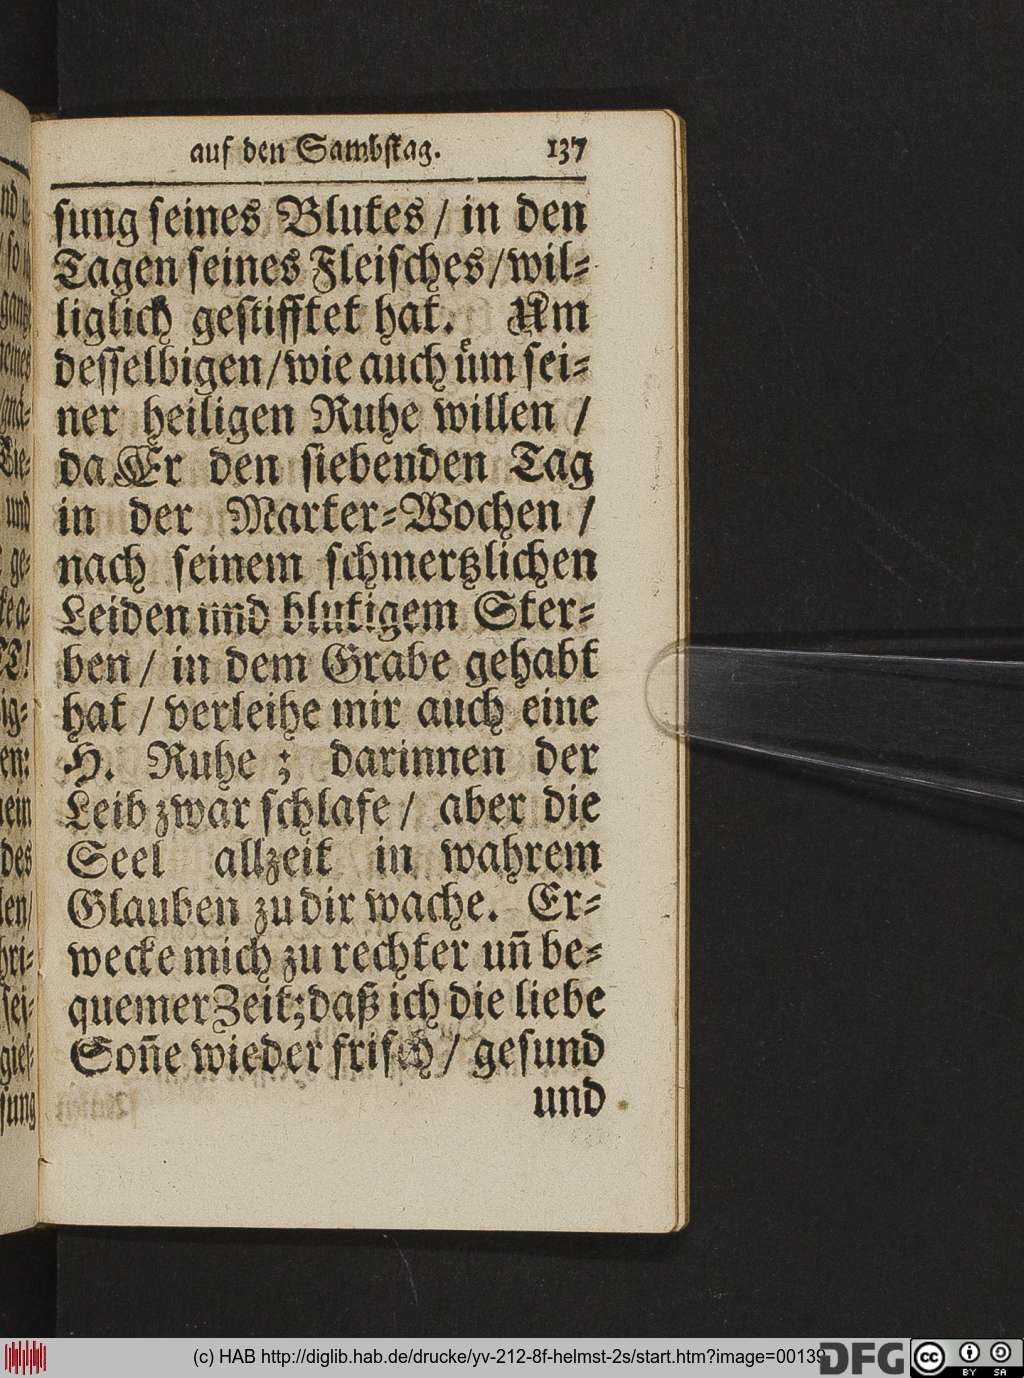 auf den Sambstag. 137
sung seines Blutes / in den
Tagen seines Fleisches / wil⸗
liglich gestifftet hat. Um
desselbigen / wie auch üm sei⸗
ner heiligen Ruhe willen /
da Er den siebenden Tag
in der Marter⸗Wochen /
nach seinem schmertzlichen
Leiden und blutigem Ster⸗
ben / in dem Grabe gehabt
hat / verleihe mir auch eine
H. Ruhe ; darinnen der
Leib zwar schlafe / aber die
Seel allzeit in wahrem
Glauben zu dir wache. Er⸗
wecke mich zu rechter un̄ be⸗
quemer Zeit; daß ich die liebe
Son̄e wieder frisch / gesund
und
(c) HAB http://diglib.hab.de/drucke/yv-212-8f-helmst-2s/start.htm?image=00139
DFG
cc BY SA